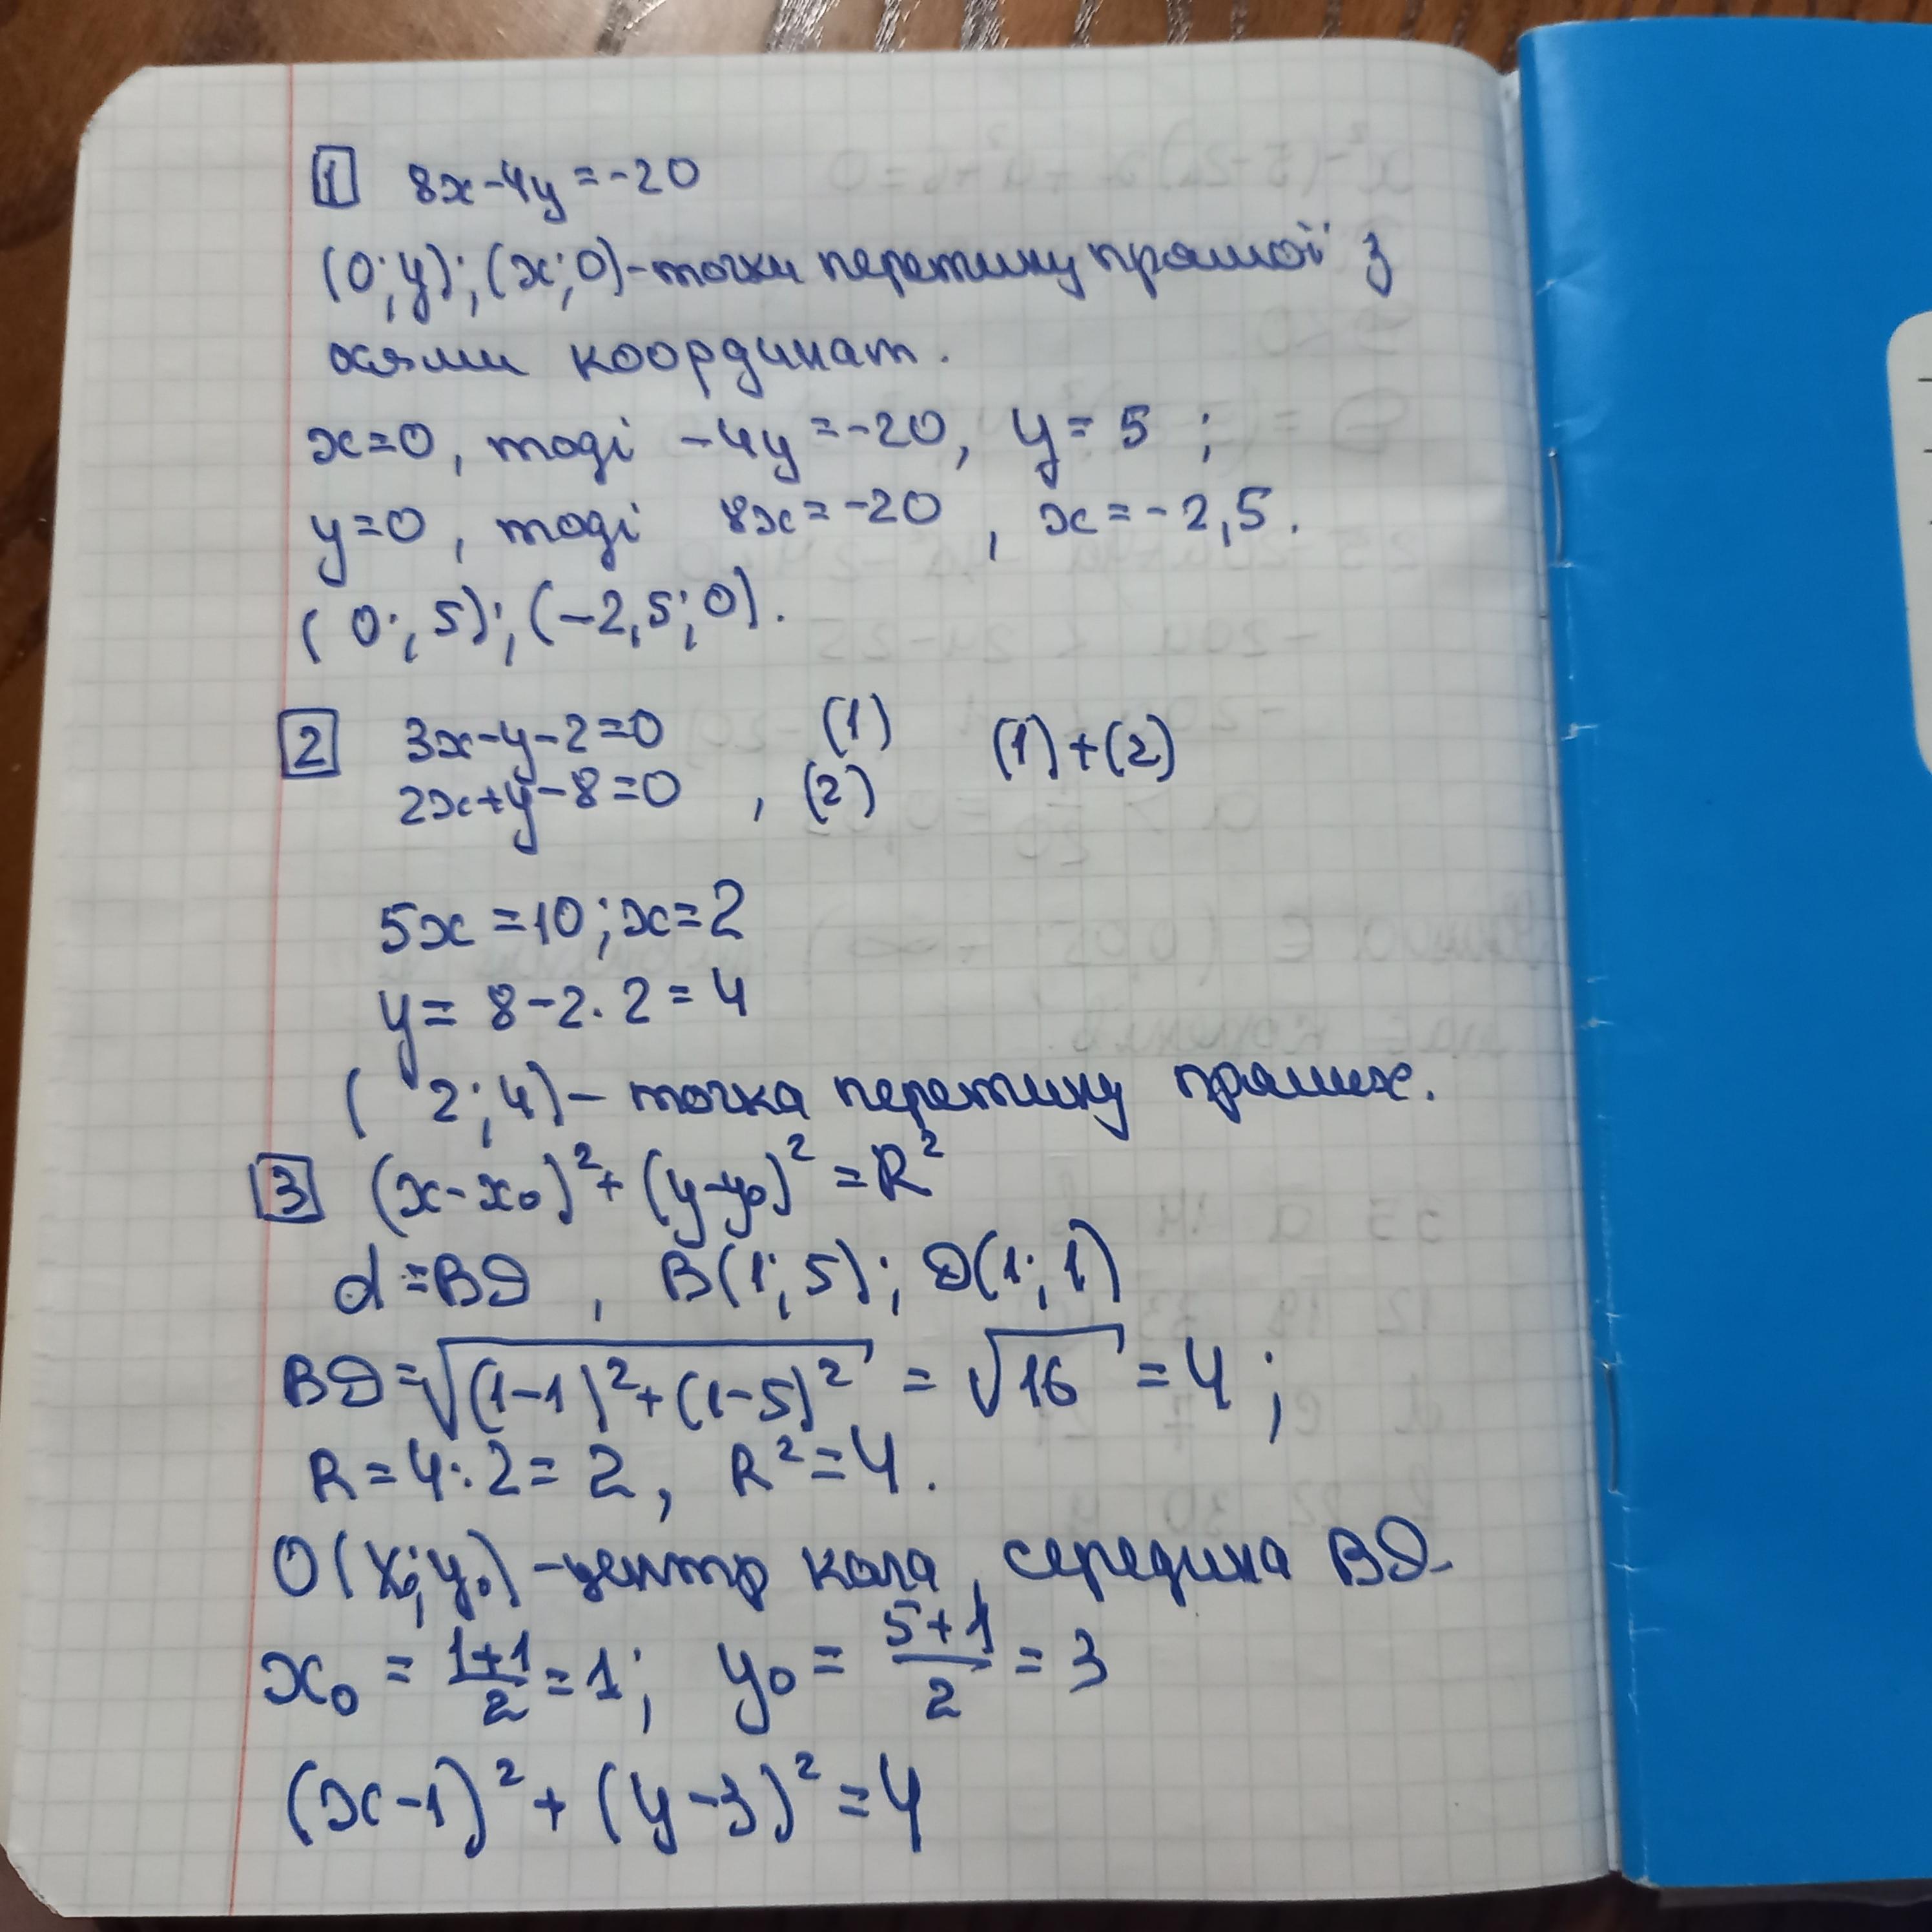 1 8x-4y=-20
(0;y);(x;0)-точки перетину прямої з
осями координат.
x=0, тоді -4y=-20, y=5;
y=0, тоді 8x=-20, x=-2,5.
(0;5);(-2,5;0).
2 3x-y-2=0 (1) (1)+(2)
2x+y-8=0, (2)
5x=10; x=2
y=8-2·2=4
(2;4)-точка перетину прямих.
3 (x-x₀)²+(y-y₀)²=R²
d=BD, B(1;5); D(1;1)
BD=√((1-1)²+(1-5)²)=√16=4;
R=4:2=2, R²=4.
O(x₀;y₀)-центр кола, середина BD.
x₀=(1+1)/2=1; y₀=(5+1)/2=3
(x-1)²+(y-3)²=4